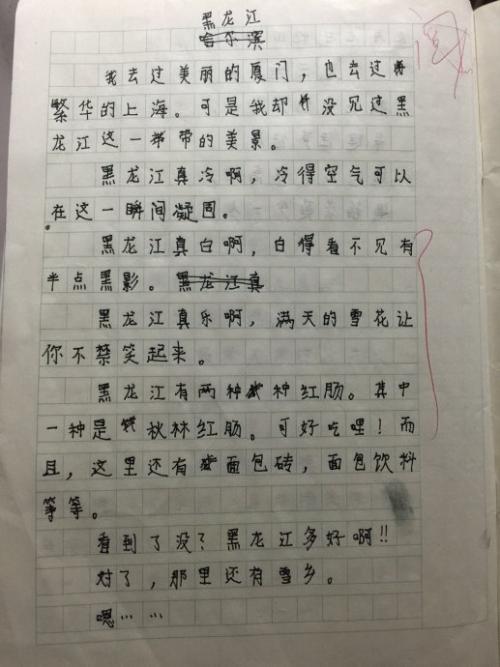 黑龙江
哈尔滨
我去过美丽的厦门，也去过
繁华的上海。可是我却没见过黑
龙江这一带的美景。
黑龙江真冷啊，冷得空气可以
在这一瞬间凝固。
黑龙江真白啊，白得看不见有
半点黑影。黑龙江真
黑龙江真乐啊，满天的雪花让
你不禁笑起来。
黑龙江有两种种红肠。其中
一种是秋林红肠。可好吃哩！而
且，这里还有面包砖，面包饮料
等等。
看到了没？黑龙江多好啊！！
对了，那里还有雪乡。
嗯……